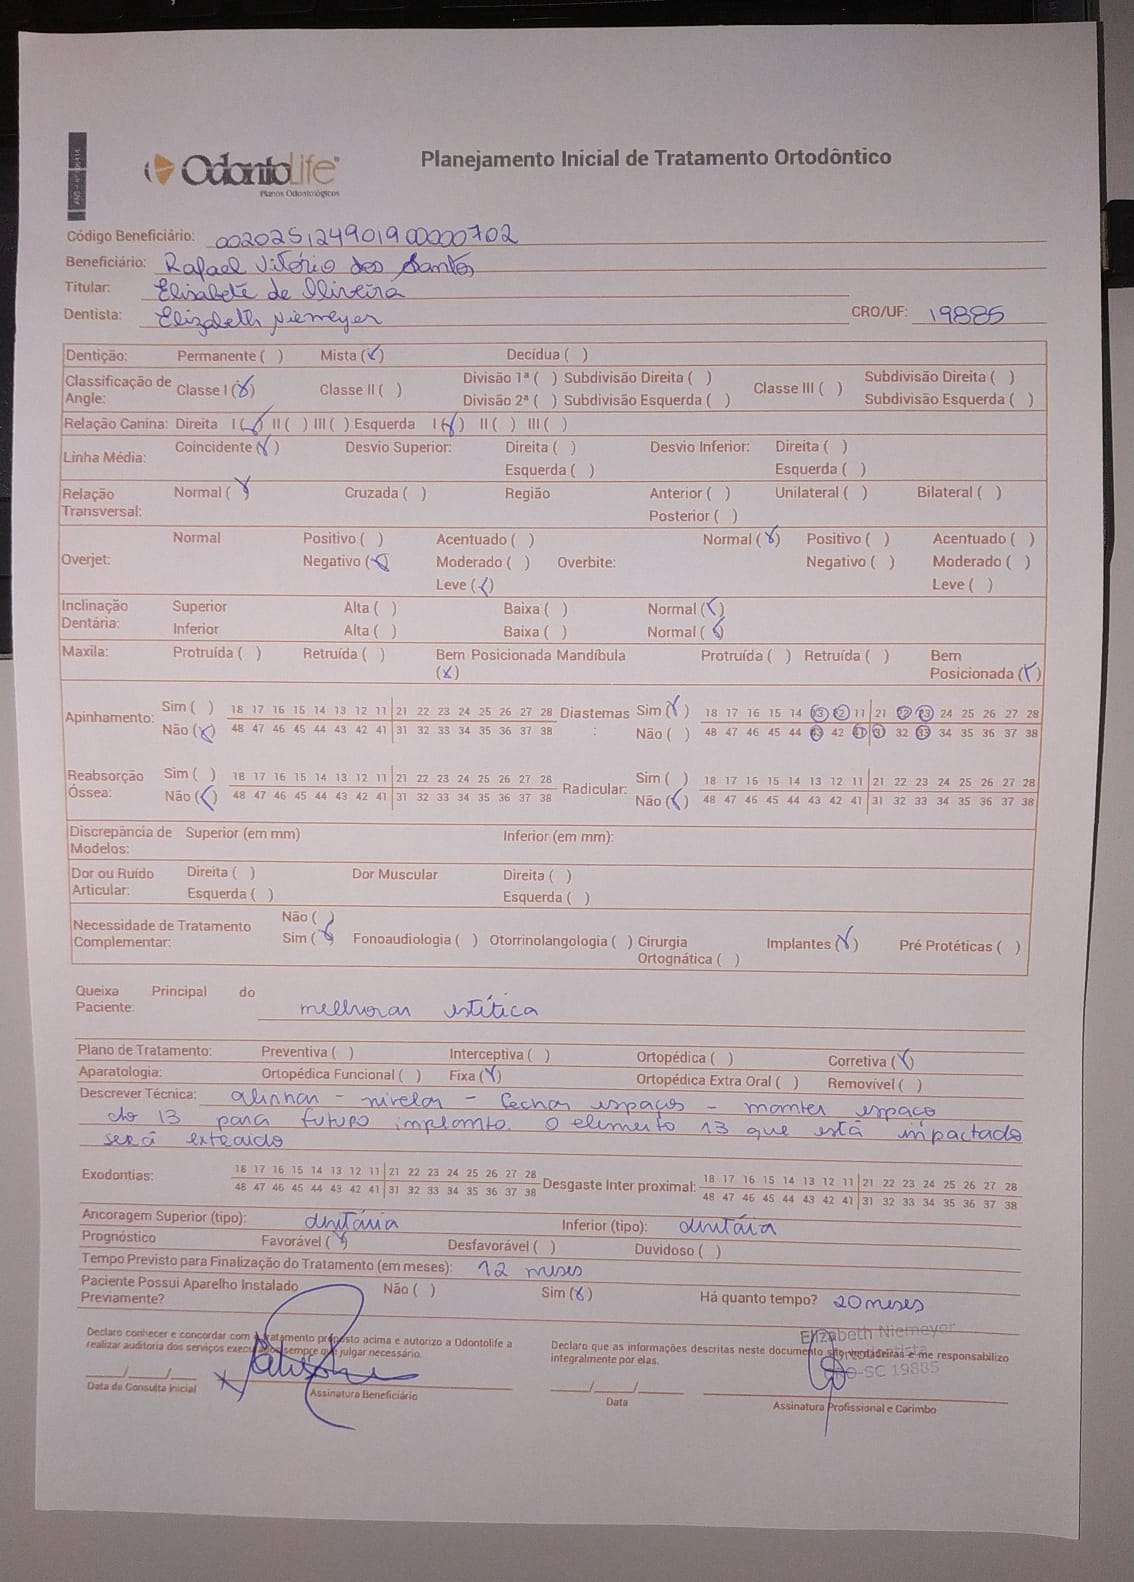 OdontoLife
Planos Odontológicos
Planejamento Inicial de Tratamento Ortodôntico
Código Beneficiário: 00202512490190000702
Beneficiário: Rafael Vitório dos Santos
Titular: Elisabete de Oliveira
Dentista: Elizabeth Niemeyer CRO/UF: 19885
Dentição: Permanente ( ) Mista (X) Decídua ( )
Classificação de Angle: Classe I (X) Classe II ( ) Divisão 1ª ( ) Subdivisão Direita ( ) Classe III ( ) Subdivisão Direita ( )
Divisão 2ª ( ) Subdivisão Esquerda ( ) Subdivisão Esquerda ( )
Relação Canina: Direita I (X) II ( ) III ( ) Esquerda I (X) II ( ) III ( )
Linha Média: Coincidente (X) Desvio Superior: Direita ( ) Desvio Inferior: Direita ( )
Esquerda ( ) Esquerda ( )
Relação Transversal: Normal (X) Cruzada ( ) Região Anterior ( ) Unilateral ( ) Bilateral ( )
Posterior ( )
Normal Positivo ( ) Acentuado ( ) Normal (X) Positivo ( ) Acentuado ( )
Overjet: Negativo (X) Moderado ( ) Overbite: Negativo ( ) Moderado ( )
Leve (X) Leve ( )
Inclinação Dentária: Superior Alta ( ) Baixa ( ) Normal (X)
Inferior Alta ( ) Baixa ( ) Normal (X)
Maxila: Protruída ( ) Retruída ( ) Bem Posicionada (X) Mandíbula Protruída ( ) Retruída ( ) Bem Posicionada (X)
Apinhamento: Sim ( ) 18 17 16 15 14 13 12 11 21 22 23 24 25 26 27 28 Diastemas: Sim (X) 18 17 16 15 14 13 12 11 21 22 23 24 25 26 27 28
Não (X) 48 47 46 45 44 43 42 41 31 32 33 34 35 36 37 38 Não ( ) 48 47 46 45 44 43 42 41 31 32 33 34 35 36 37 38
Reabsorção Óssea: Sim ( ) 18 17 16 15 14 13 12 11 21 22 23 24 25 26 27 28 Radicular: Sim ( ) 18 17 16 15 14 13 12 11 21 22 23 24 25 26 27 28
Não (X) 48 47 46 45 44 43 42 41 31 32 33 34 35 36 37 38 Não (X) 48 47 46 45 44 43 42 41 31 32 33 34 35 36 37 38
Discrepância de Modelos: Superior (em mm) Inferior (em mm):
Dor ou Ruído Articular: Direita ( ) Dor Muscular Direita ( )
Esquerda ( ) Esquerda ( )
Necessidade de Tratamento Complementar: Não ( )
Sim (X) Fonoaudiologia ( ) Otorrinolangologia ( ) Cirurgia Ortognática ( ) Implantes (X) Pré Protéticas ( )
Queixa Principal do Paciente: melhorar estética
Plano de Tratamento: Preventiva ( ) Interceptiva ( ) Ortopédica ( ) Corretiva (X)
Aparatologia: Ortopédica Funcional ( ) Fixa (X) Ortopédica Extra Oral ( ) Removível ( )
Descrever Técnica: alinhar - nivelar - fechar espaços - manter espaço
do 13 para futuro implante. O elemento 13 que está impactado
será extraído
Exodontias: 18 17 16 15 14 13 12 11 21 22 23 24 25 26 27 28 Desgaste Inter proximal: 18 17 16 15 14 13 12 11 21 22 23 24 25 26 27 28
48 47 46 45 44 43 42 41 31 32 33 34 35 36 37 38 48 47 46 45 44 43 42 41 31 32 33 34 35 36 37 38
Ancoragem Superior (tipo): dentária Inferior (tipo): dentária
Prognóstico Favorável (X) Desfavorável ( ) Duvidoso ( )
Tempo Previsto para Finalização do Tratamento (em meses): 12 meses
Paciente Possui Aparelho Instalado Previamente? Não ( ) Sim (X) Há quanto tempo? 20 meses
Declaro conhecer e concordar com o tratamento proposto acima e autorizo a Odontolife a
realizar auditoria dos serviços executados sempre que julgar necessário.
Declaro que as informações descritas neste documento são verdadeiras e me responsabilizo
integralmente por elas.
Elizabeth Niemeyer
CRO-SC 19885
___/___/___ Data da Consulta Inicial Assinatura Beneficiário ___/___/___ Data Assinatura Profissional e Carimbo